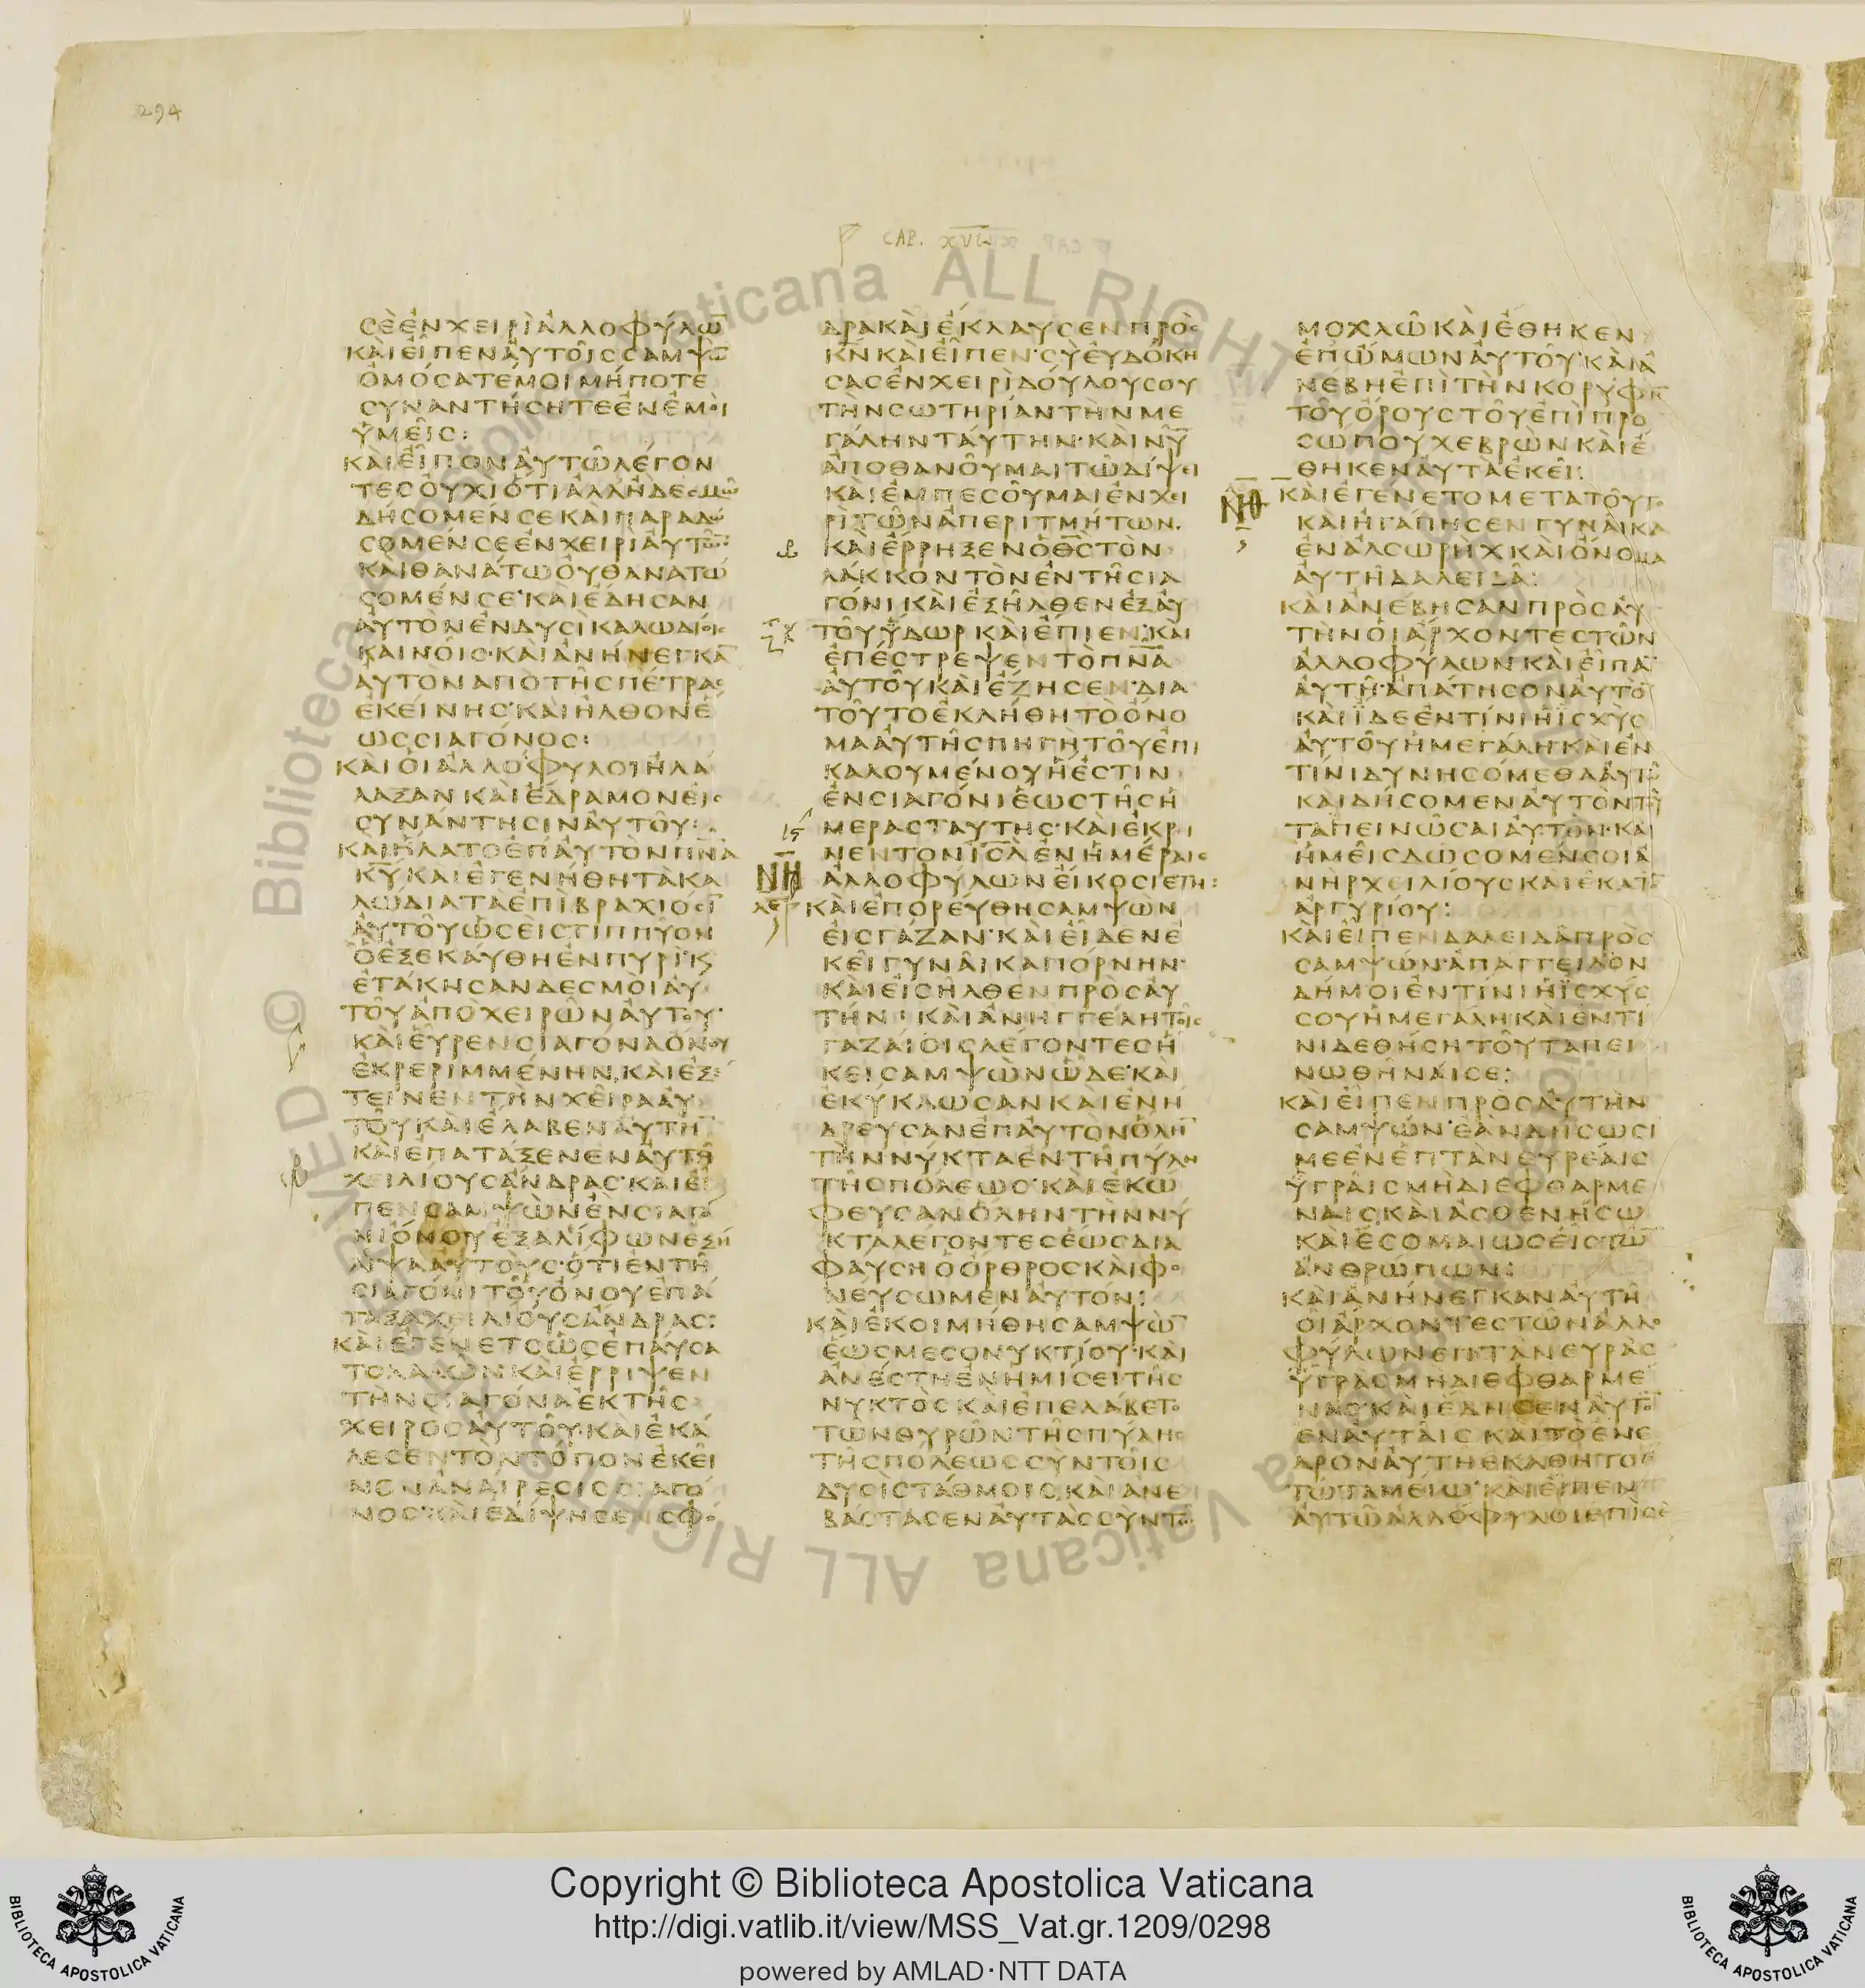 294
CAP. XVI
ϹΕΕΝΧΕΙΡΙΑΛΛΟΦΥΛΩ̅
ΚΑΙΕΙΠΕΝΑΥΤΟΙϹϹΑΜΨΩ̅
ΟΜΟϹΑΤΕΜΟΙΜΗΠΟΤΕ
ϹΥΝΑΝΤΗϹΗΤΕΕΝΕΜΟΙ
ΥΜΕΙϹ:
ΚΑΙΕΙΠΟΝΑΥΤΩΛΕΓΟΝ
ΤΕϹΟΥΧΙΟΤΙΑΛΛΗΔΕϹΜΩ
ΔΗϹΟΜΕΝϹΕΚΑΙΠΑΡΑΔΩ
ϹΟΜΕΝϹΕΕΝΧΕΙΡΙΑΥΤΩ̅
ΚΑΙΘΑΝΑΤΩΟΥΘΑΝΑΤΩ
ϹΟΜΕΝϹΕ·ΚΑΙΕΔΗϹΑΝ
ΑΥΤΟΝΕΝΔΥϹΙΚΑΛΩΔΙΟΙϹ
ΚΑΙΝΟΙϹ·ΚΑΙΑΝΗΝΕΓΚΑ̅
ΑΥΤΟΝΑΠΟΤΗϹΠΕΤΡΑϹ
ΕΚΕΙΝΗϹ·ΚΑΙΗΛΘΟΝΕ
ΩϹϹΙΑΓΟΝΟϹ:
ΚΑΙΟΙΑΛΛΟΦΥΛΟΙΗΛΑ
ΛΑΞΑΝΚΑΙΕΔΡΑΜΟΝΕΙϹ
ϹΥΝΑΝΤΗϹΙΝΑΥΤΟΥ:
ΚΑΙΗΛΑΤΟΕΠΑΥΤΟΝΠΝΑ
Κ̅Υ̅ΚΑΙΕΓΕΝΗΘΗΤΑΚΑ
ΛΩΔΙΑΤΑΕΠΙΒΡΑΧΙΟϹΙ
ΑΥΤΟΥΩϹΕΙϹΤΙΠΠΥΟΝ
ΟΕΞΕΚΑΥΘΗΕΝΠΥΡΙ·Κ
ΕΤΑΚΗϹΑΝΔΕϹΜΟΙΑΥ
ΤΟΥΑΠΟΧΕΙΡΩΝΑΥΤΟΥ·
ΚΑΙΕΥΡΕΝϹΙΑΓΟΝΑΟΝΟΥ
ΕΚΡΕΡΙΜΜΕΝΗΝ·ΚΑΙΕΞΕ
ΤΕΙΝΕΝΤΗΝΧΕΙΡΑΑΥ
ΤΟΥΚΑΙΕΛΑΒΕΝΑΥΤΗ̅
ΚΑΙΕΠΑΤΑΞΕΝΕΝΑΥΤΗ
ΧΕΙΛΙΟΥϹΑΝΔΡΑϹ·ΚΑΙΕΙ
ΠΕΝϹΑΜΨΩΝΕΝϹΙΑΓΟ
ΝΙΟΝΟΥΕΞΑΛΙΦΩΝΕΞΗ
ΛΙΨΑΑΥΤΟΥϹ·ΟΤΙΕΝΤΗ
ϹΙΑΓΟΝΙΤΟΥΟΝΟΥΕΠΑ
ΤΑΞΑΧΕΙΛΙΟΥϹΑΝΔΡΑϹ:
ΚΑΙΕΓΕΝΕΤΟΩϹΕΠΑΥϹΑ
ΤΟΛΑΛΩΝΚΑΙΕΡΡΙΨΕΝ
ΤΗΝϹΙΑΓΟΝΑΕΚΤΗϹ
ΧΕΙΡΟϹΑΥΤΟΥ·ΚΑΙΕΚΑ
ΛΕϹΕΝΤΟΝΤΟΠΟΝΕΚΕΙ
ΝΟΝΑΝΑΙΡΕϹΙϹϹΙΑΓΟ
ΝΟϹ·ΚΑΙΕΔΙΨΗϹΕΝϹΦΟ
ΔΡΑΚΑΙΕΚΛΑΥϹΕΝΠΡΟϹ
Κ̅Ν̅ΚΑΙΕΙΠΕΝ·ϹΥΕΥΔΟΚΗ
ϹΑϹΕΝΧΕΙΡΙΔΟΥΛΟΥϹΟΥ
ΤΗΝϹΩΤΗΡΙΑΝΤΗΝΜΕ
ΓΑΛΗΝΤΑΥΤΗΝ·ΚΑΙΝΥ̅
ΑΠΟΘΑΝΟΥΜΑΙΤΩΔΙΨΕΙ
ΚΑΙΕΜΠΕϹΟΥΜΑΙΕΝΧΕΙ
ΡΙΤΩΝΑΠΕΡΙΤΜΗΤΩΝ·
ΚΑΙΕΡΡΗΞΕΝΟΘ̅Ϲ̅ΤΟΝ
ΛΑΚΚΟΝΤΟΝΕΝΤΗϹΙΑ
ΓΟΝΙ·ΚΑΙΕΞΗΛΘΕΝΕΞΑΥ
ΤΟΥΥΔΩΡΚΑΙΕΠΙΕΝ·ΚΑΙ
ΕΠΕϹΤΡΕΨΕΝΤΟΠ̅Ν̅Α̅
ΑΥΤΟΥΚΑΙΕΖΗϹΕΝ·ΔΙΑ
ΤΟΥΤΟΕΚΛΗΘΗΤΟΟΝΟ
ΜΑΑΥΤΗϹΠΗΓΗΤΟΥΕΠΙ
ΚΑΛΟΥΜΕΝΟΥΗΕϹΤΙΝ
ΕΝϹΙΑΓΟΝΙΕΩϹΤΗϹΗ
ΜΕΡΑϹΤΑΥΤΗϹ·ΚΑΙΕΚΡΙ
ΝΕΝΤΟΝΙ̅Ϲ̅Λ̅ΕΝΗΜΕΡΑΙϹ
ΝΗ ΑΛΛΟΦΥΛΩΝΕΙΚΟϹΙΕΤΗ:
ΚΑΙΕΠΟΡΕΥΘΗϹΑΜΨΩΝ
ΕΙϹΓΑΖΑΝ·ΚΑΙΕΙΔΕΝΕ
ΚΕΙΓΥΝΑΙΚΑΠΟΡΝΗΝ·
ΚΑΙΕΙϹΗΛΘΕΝΠΡΟϹΑΥ
ΤΗΝ·ΚΑΙΑΝΗΓΓΕΛΗΤΟΙϹ
ΓΑΖΑΙΟΙϹΛΕΓΟΝΤΕϹΗ
ΚΕΙϹΑΜΨΩΝΩΔΕ·ΚΑΙ
ΕΚΥΚΛΩϹΑΝΚΑΙΕΝΗ
ΔΡΕΥϹΑΝΕΠΑΥΤΟΝΟΛΗ̅
ΤΗΝΝΥΚΤΑΕΝΤΗΠΥΛΗ
ΤΗϹΠΟΛΕΩϹ·ΚΑΙΕΚΩ
ΦΕΥϹΑΝΟΛΗΝΤΗΝΝΥ
ΚΤΑΛΕΓΟΝΤΕϹΕΩϹΔΙΑ
ΦΑΥϹΗΟΟΡΘΡΟϹΚΑΙΦΟ
ΝΕΥϹΩΜΕΝΑΥΤΟΝ:
ΚΑΙΕΚΟΙΜΗΘΗϹΑΜΨΩ̅
ΕΩϹΜΕϹΟΝΥΚΤΙΟΥ·ΚΑΙ
ΑΝΕϹΤΗΕΝΗΜΙϹΕΙΤΗϹ
ΝΥΚΤΟϹΚΑΙΕΠΕΛΑΒΕΤΟ
ΤΩΝΘΥΡΩΝΤΗϹΠΥΛΗϹ
ΤΗϹΠΟΛΕΩϹϹΥΝΤΟΙϹ
ΔΥϹΙϹΤΑΘΜΟΙϹ·ΚΑΙΑΝΕ
ΒΑϹΤΑϹΕΝΑΥΤΑϹϹΥΝΤΩ
ΜΟΧΛΩΚΑΙΕΘΗΚΕΝ
ΕΠΩΜΩΝΑΥΤΟΥ·ΚΑΙΑ
ΝΕΒΗΕΠΙΤΗΝΚΟΡΥΦΗ̅
ΤΟΥΟΡΟΥϹΤΟΥΕΠΙΠΡΟ
ϹΩΠΟΥΧΕΒΡΩΝΚΑΙΕ
ΘΗΚΕΝΑΥΤΑΕΚΕΙ:
ΝΘ ΚΑΙΕΓΕΝΕΤΟΜΕΤΑΤΟΥΤΟ
ΚΑΙΗΓΑΠΗϹΕΝΓΥΝΑΙΚΑ
ΕΝΑΛϹΩΡΗΧΚΑΙΟΝΟΜΑ
ΑΥΤΗΔΑΛΕΙΔΑ:
ΚΑΙΑΝΕΒΗϹΑΝΠΡΟϹΑΥ
ΤΗΝΟΙΑΡΧΟΝΤΕϹΤΩΝ
ΑΛΛΟΦΥΛΩΝΚΑΙΕΙΠΑ̅
ΑΥΤΗ·ΑΠΑΤΗϹΟΝΑΥΤΟ̅
ΚΑΙΙΔΕΕΝΤΙΝΙΗΙϹΧΥϹ
ΑΥΤΟΥΗΜΕΓΑΛΗ·ΚΑΙΕΝ
ΤΙΝΙΔΥΝΗϹΟΜΕΘΑΑΥΤΩ
ΚΑΙΔΗϹΟΜΕΝΑΥΤΟΝΤΟΥ
ΤΑΠΕΙΝΩϹΑΙΑΥΤΟΝ·ΚΑΙ
ΗΜΕΙϹΔΩϹΟΜΕΝϹΟΙΑ
ΝΗΡΧΕΙΛΙΟΥϹΚΑΙΕΚΑΤΟ̅
ΑΡΓΥΡΙΟΥ:
ΚΑΙΕΙΠΕΝΔΑΛΕΙΔΑΠΡΟϹ
ϹΑΜΨΩΝ·ΑΠΑΓΓΕΙΛΟΝ
ΔΗΜΟΙΕΝΤΙΝΙΗΙϹΧΥϹ
ϹΟΥΗΜΕΓΑΛΗΚΑΙΕΝΤΙ
ΝΙΔΕΘΗϹΗΤΟΥΤΑΠΕΙ
ΝΩΘΗΝΑΙϹΕ:
ΚΑΙΕΙΠΕΝΠΡΟϹΑΥΤΗΝ
ϹΑΜΨΩΝ·ΕΑΝΔΗϹΩϹΙ
ΜΕΕΝΕΠΤΑΝΕΥΡΕΑΙϹ
ΥΓΡΑΙϹΜΗΔΙΕΦΘΑΡΜΕ
ΝΑΙϹ·ΚΑΙΑϹΘΕΝΗϹΩ
ΚΑΙΕϹΟΜΑΙΩϹΕΙϹΤΩ̅
ΑΝΘΡΩΠΩΝ:
ΚΑΙΑΝΗΝΕΓΚΑΝΑΥΤΗ
ΟΙΑΡΧΟΝΤΕϹΤΩΝΑΛΛΟ
ΦΥΛΩΝΕΠΤΑΝΕΥΡΑϹ
ΥΓΡΑϹΜΗΔΙΕΦΘΑΡΜΕ
ΝΑϹ·ΚΑΙΕΔΗϹΕΝΑΥΤΟ̅
ΕΝΑΥΤΑΙϹΚΑΙΤΟΕΝΕ
ΔΡΟΝΑΥΤΗΕΚΑΘΗΤΟΕ̅
ΤΩΤΑΜΕΙΩ·ΚΑΙΕΙΠΕΝ
ΑΥΤΩΑΛΛΟΦΥΛΟΙΕΠΙϹΕ
© Biblioteca Apostolica Vaticana ALL RIGHTS RESERVED
Copyright © Biblioteca Apostolica Vaticana
http://digi.vatlib.it/view/MSS_Vat.gr.1209/0298
powered by AMLAD·NTT DATA
BIBLIOTECA APOSTOLICA VATICANA
BIBLIOTECA APOSTOLICA VATICANA